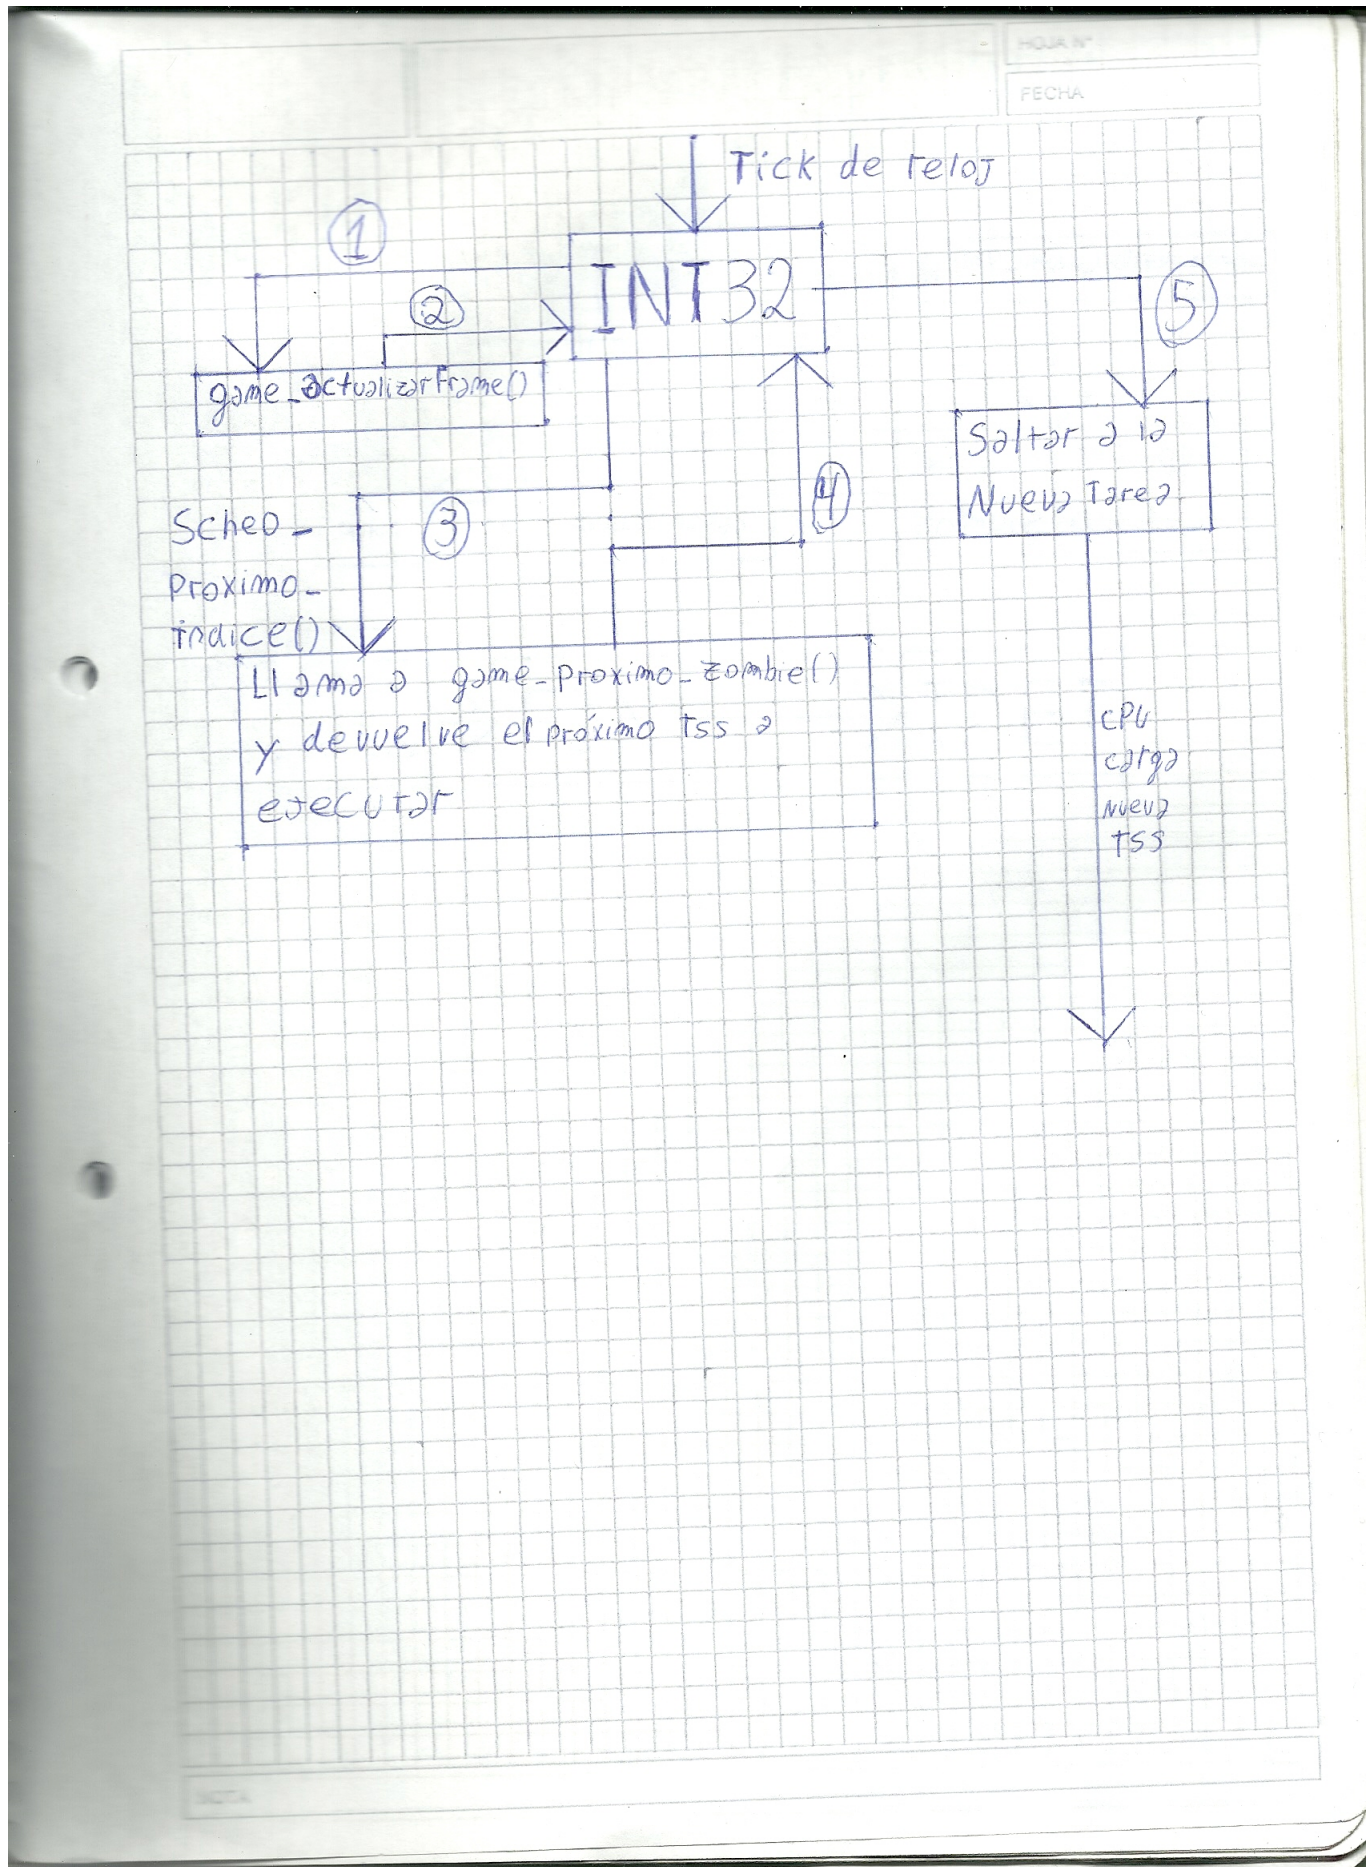 HOJA N°
FECHA
Tick de reloj
1
INT32
2
5
game_actualizarFrame()
Saltar a la
Nueva Tarea
4
3
Sched_
proximo_
indice()
Llama a game_proximo_zombie()
y devuelve el próximo tss a
ejecutar
CPU
carga
nueva
TSS
NOTA